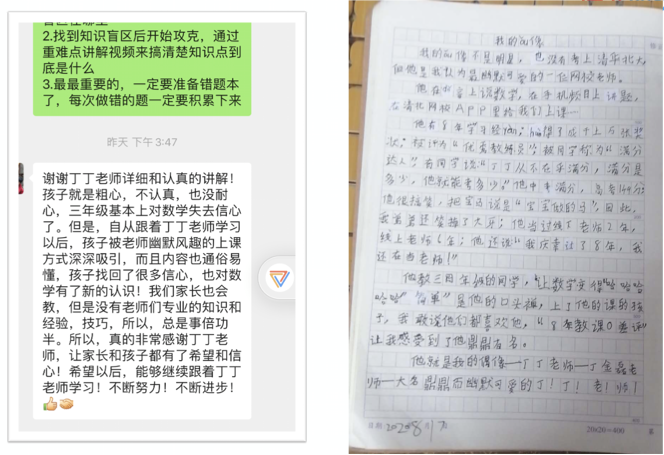 2.找到知识盲区后开始攻克，通过
重难点讲解视频来搞清楚知识点到
底是什么
3.最最重要的，一定要准备错题本
了，每次做错的题一定要积累下来
昨天 下午3:47
谢谢丁丁老师详细和认真的讲解！
孩子就是粗心，不认真，也没耐
心，三年级基本上对数学失去信心
了。但是，自从跟着丁丁老师学习
以后，孩子被老师幽默风趣的上课
方式深深吸引，而且内容也通俗易
懂，孩子找回了很多信心，也对数
学有了新的认识！我们家长也会
教，但是没有老师们专业的知识和
经验，技巧，所以，总是事倍功
半。所以，真的非常感谢丁丁老
师，让家长和孩子都有了希望和信
心！希望以后，能够继续跟着丁丁
老师学习！不断努力！不断进步！
我的偶像
我的偶像不是明星，也没有考上清华北大，
但他是我认为最幽默可爱的一位网校老师。
他在台上讲数学，在手机频目上讲题，
在清北网校APP里给我们上课
他有8年学习经验；得了成千上万张奖
状；被评为"优秀教练员"；被同学称为"满分
达人"；有同学说"丁丁从不在乎满分，满分是
多少，他就能考多少。"他中考满分，高考144分；
线上老师6年；他还说"我庆幸过了8年，我
还在当老师！"
他教三四年级的同学，"上数学变得哈哈哈
哈哈""简单"是他的口头禅，上了他的课的孩
子，我敢说他们都喜欢他，
让我感受到了他鼎鼎有名。
他就是我的偶像——丁丁老师—丁金磊老
师—大名鼎鼎而幽默可爱的丁！丁！老！师！
20×20=400